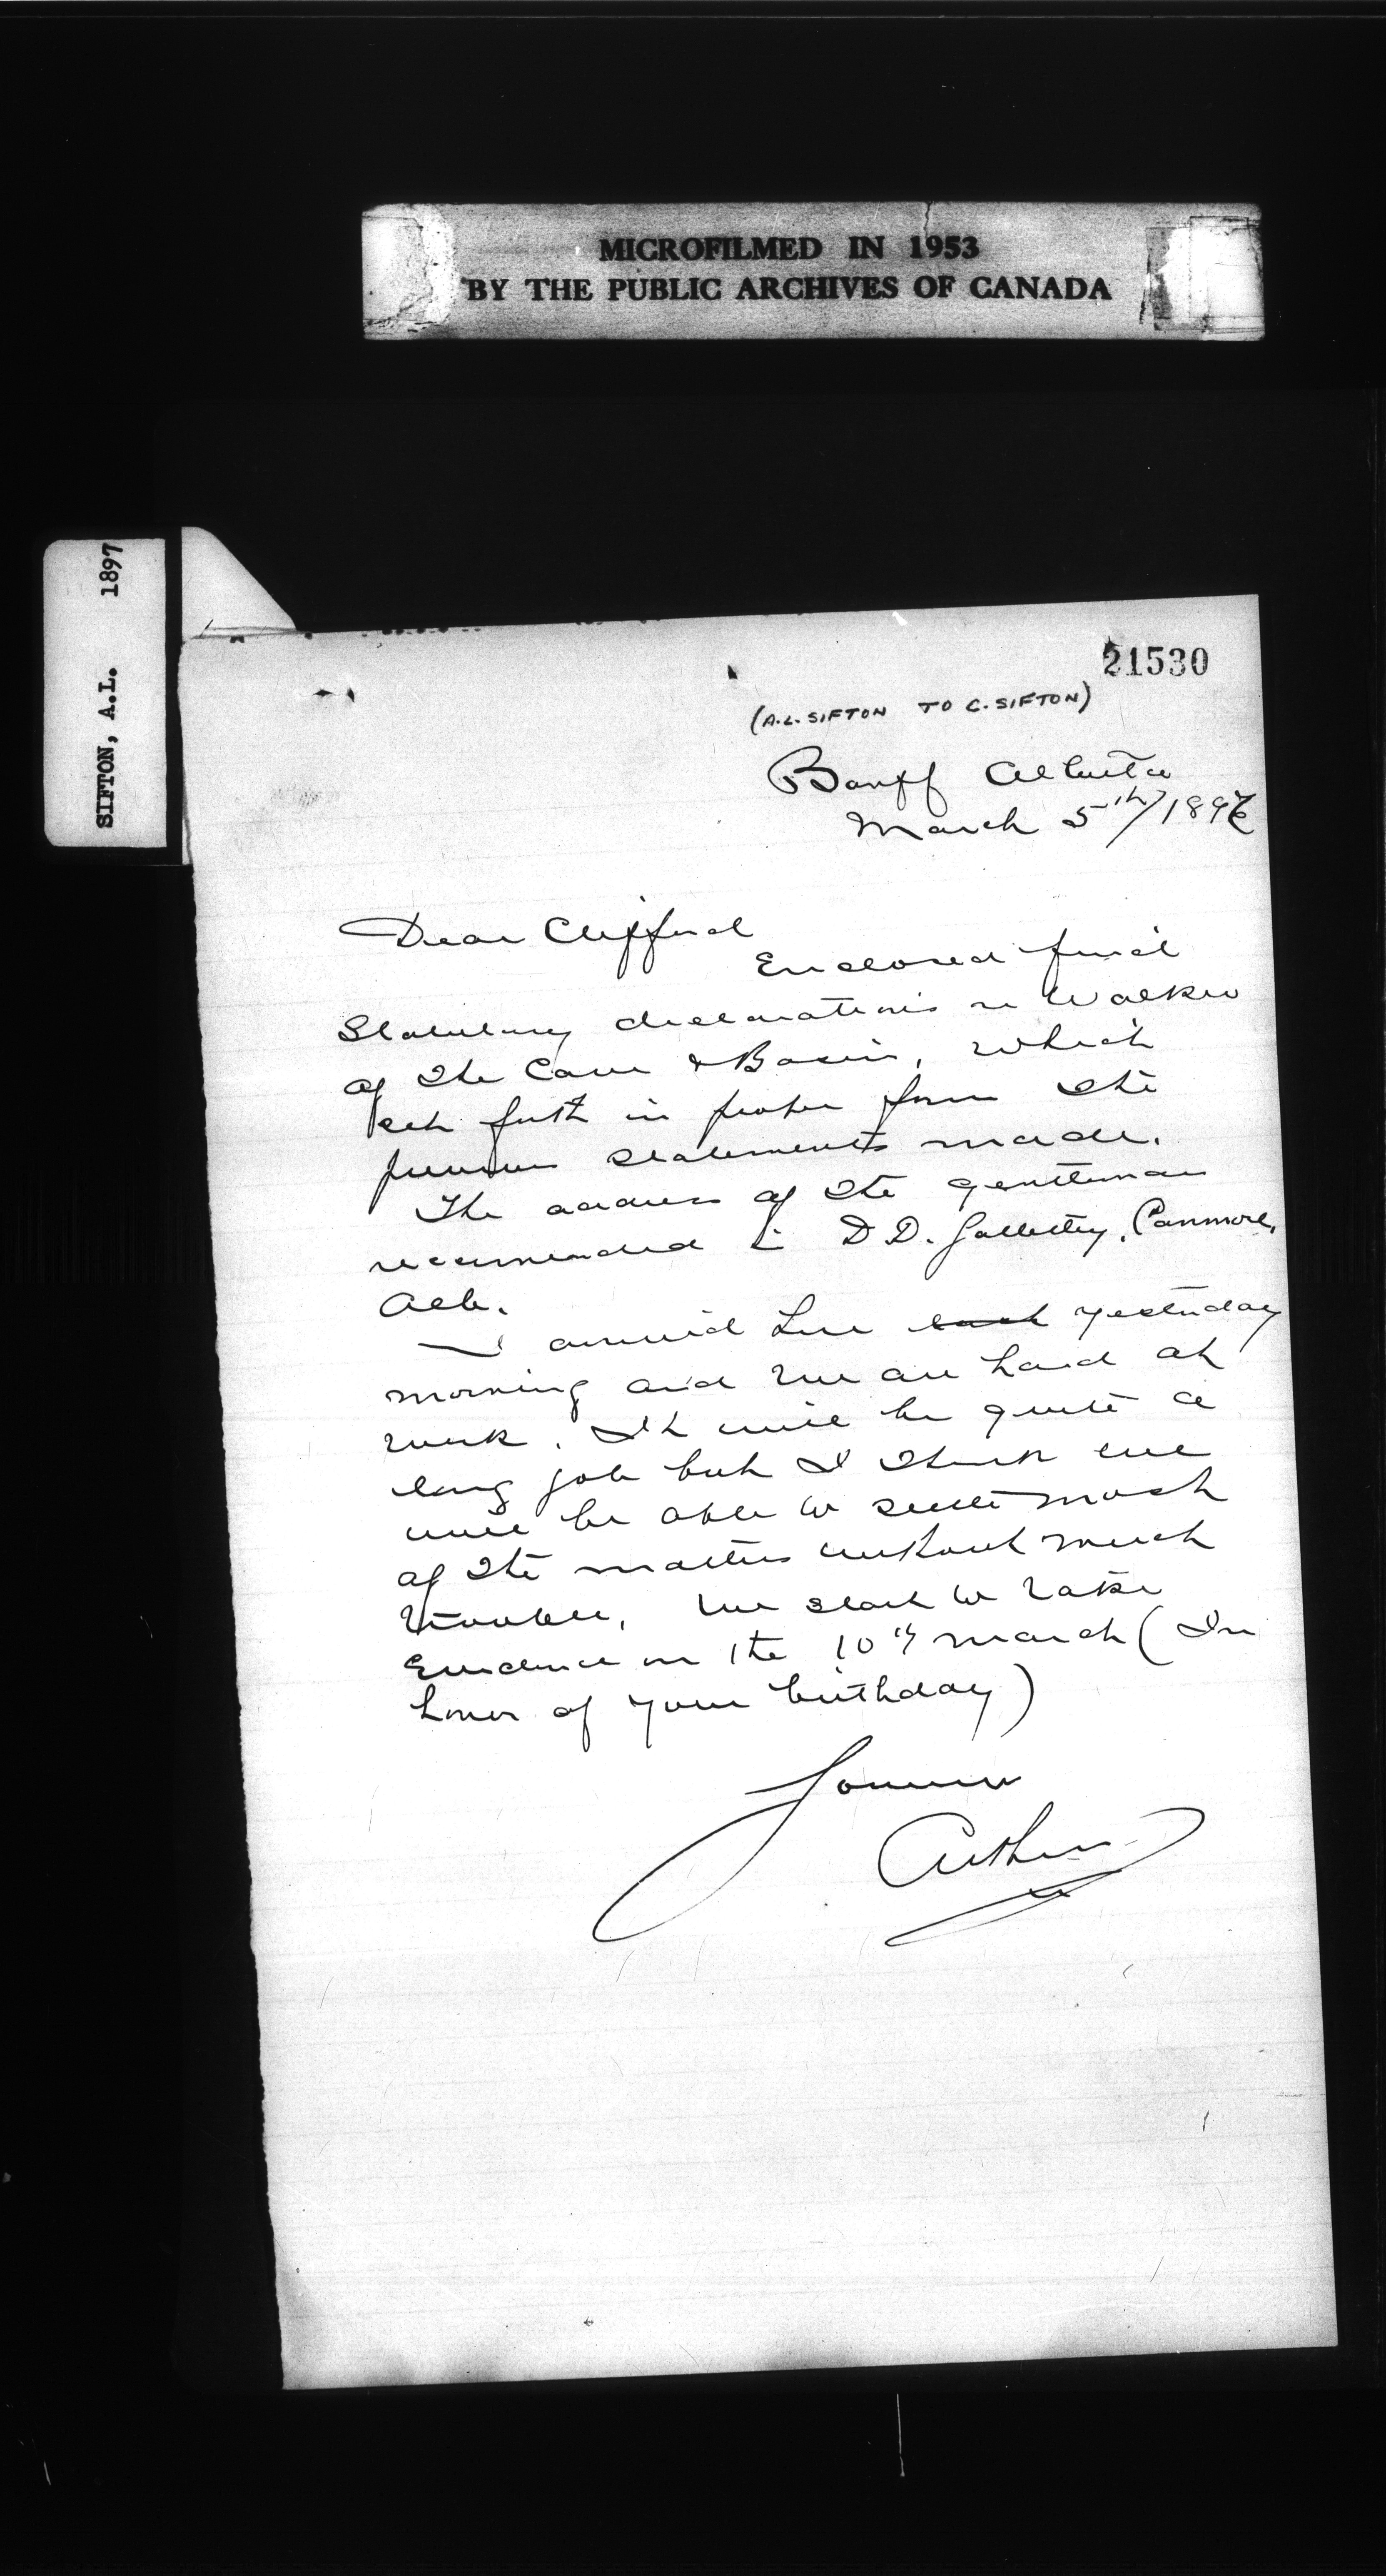 MICROFILMED IN 1953
BY THE PUBLIC ARCHIVES OF CANADA
SIFTON, A.L. 1897
21530
(A.L. SIFTON TO C. SIFTON)
Banff Alberta
March 5th/1897
Dear Clifford
Enclosed find
Statutory declarations re Walker
of the Cave & Basin, which
set forth in proper form the
previous statements made.
The address of the gentleman
recommended is D D. Galletly, Canmore,
Alb.
I arrived here last yesterday
morning and we are hard at
work. It will be quite a
long job but I think we
will be able to settle most
of the matters without much
trouble, we start to take
Evidence on the 10th march (In
honor of your birthday)
Yours
Arthur